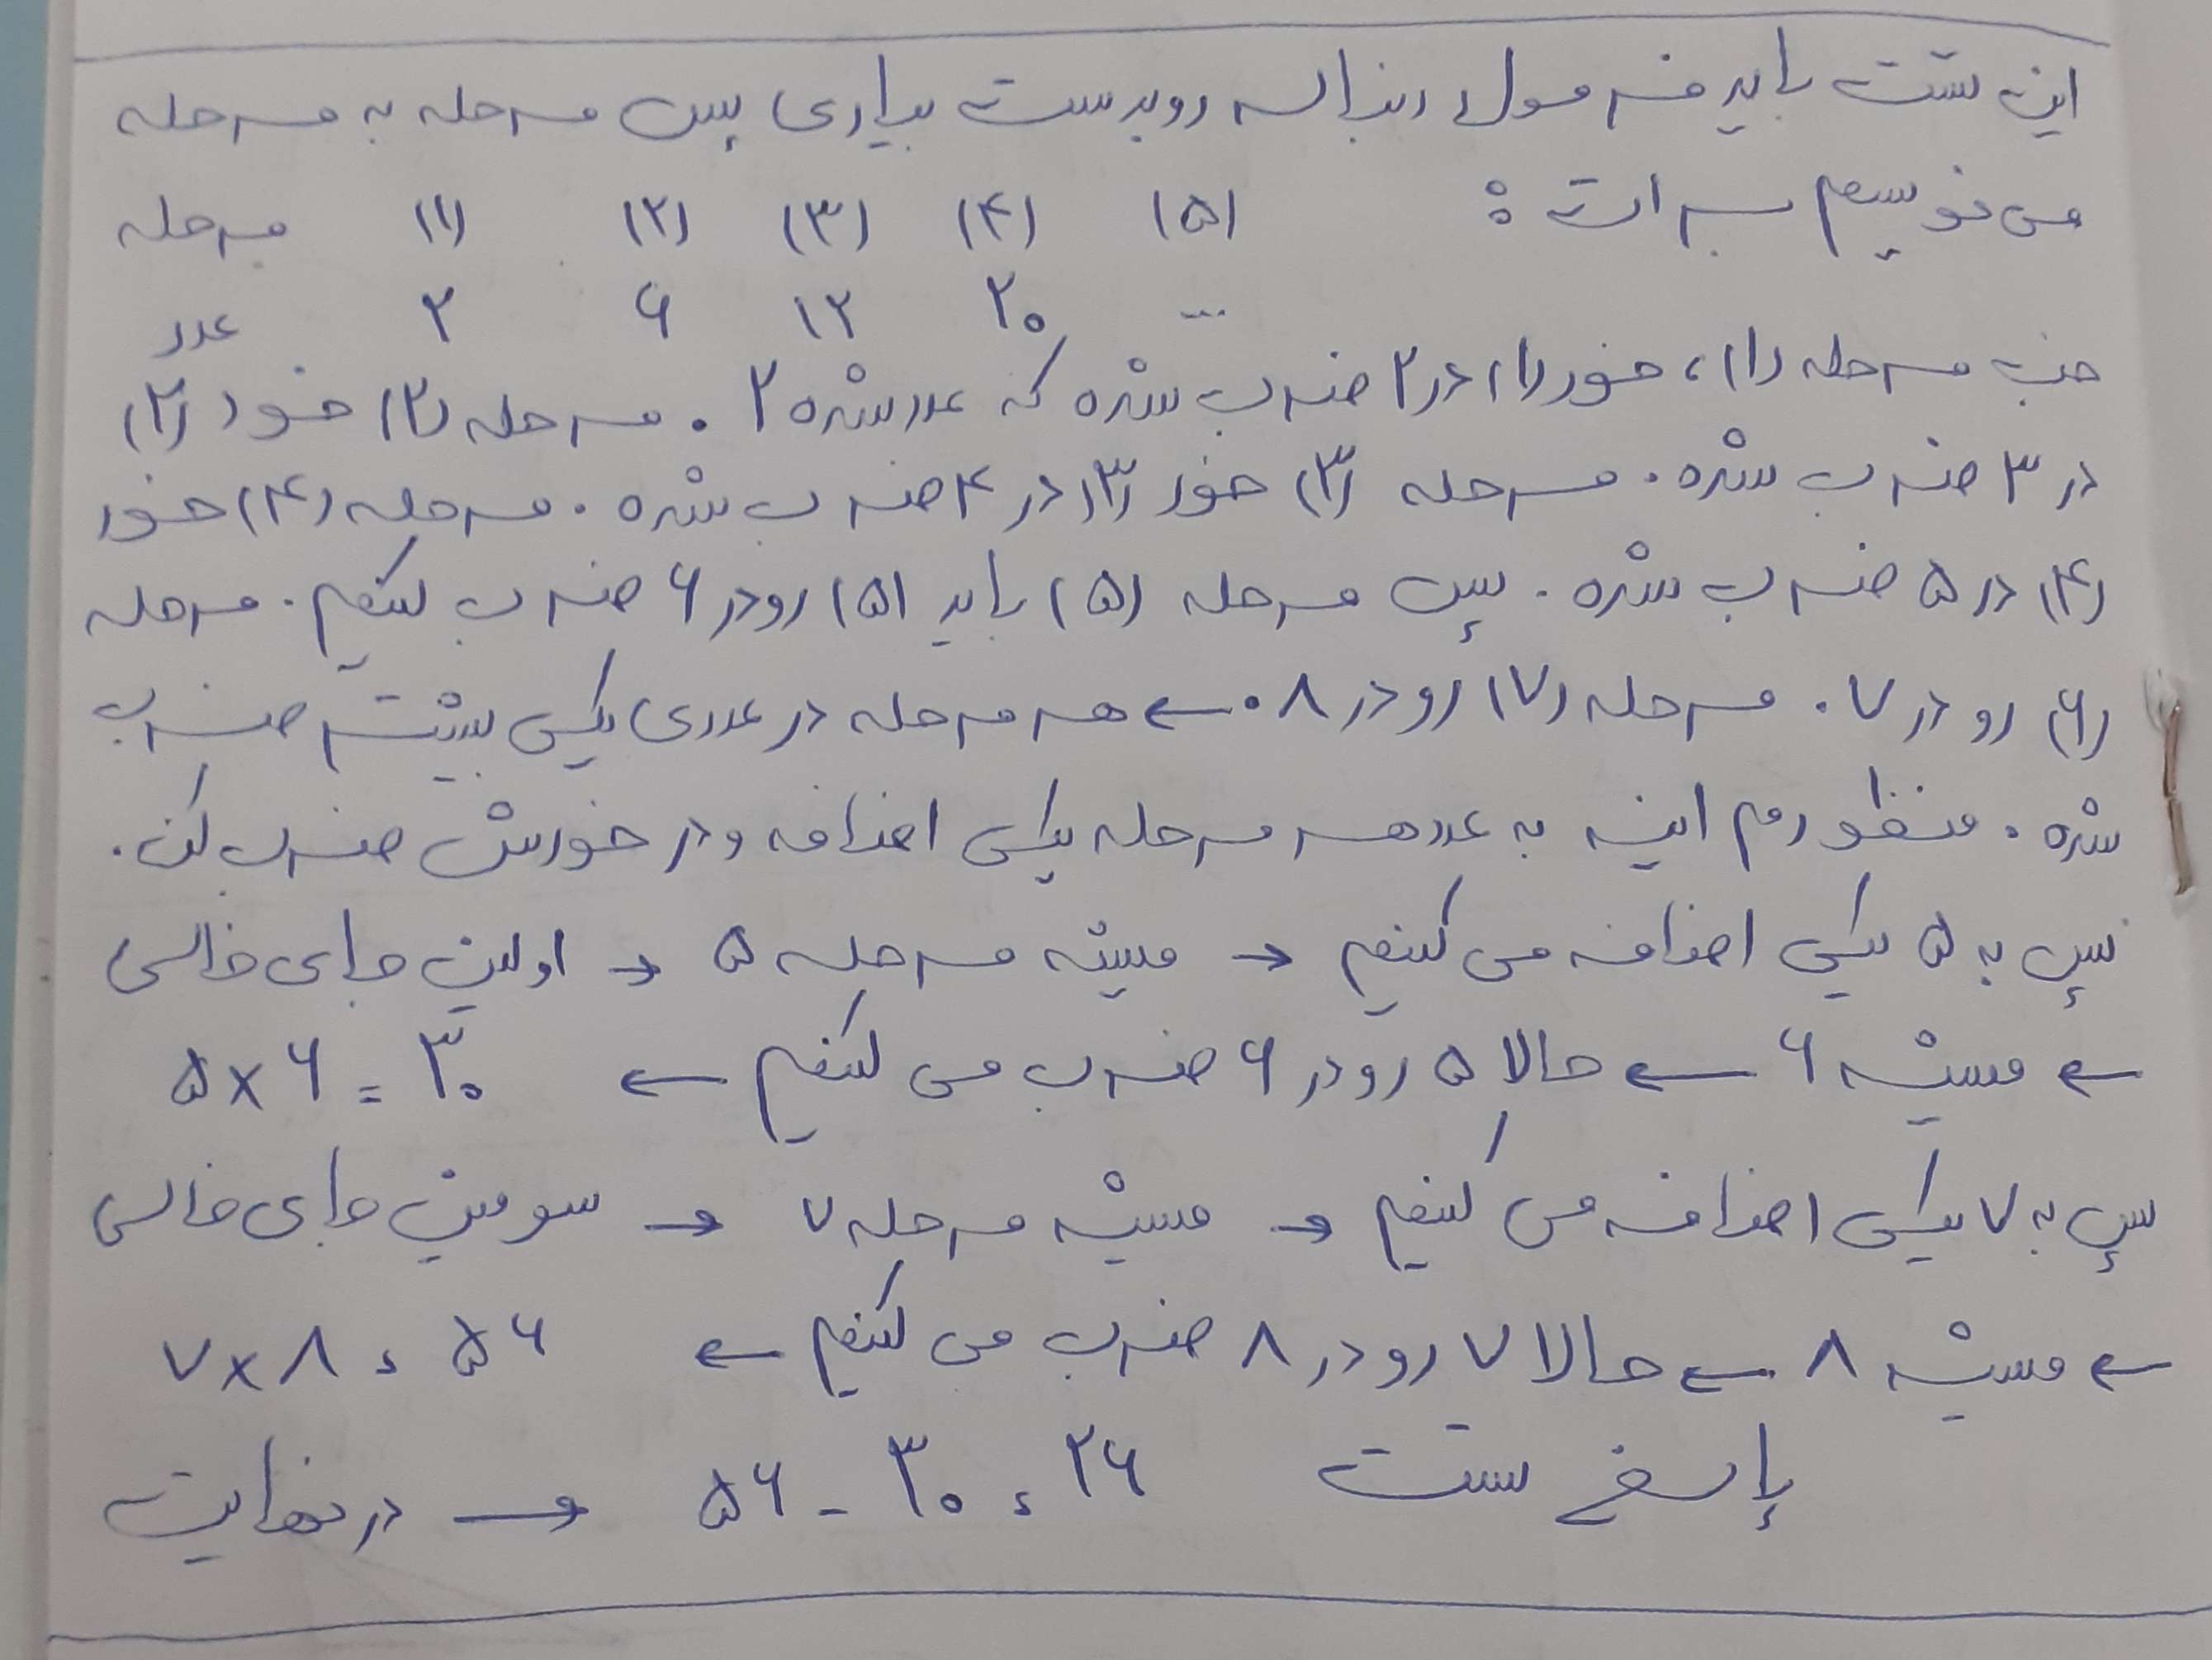 این تست باید فرمول دنباله رو بدست بیاری پس مرحله به مرحله
می نویسم برات :
مرحله (۱) (۲) (۳) (۴) (۵)
عدد ۲ ۶ ۱۲ ۲۰ ...
خب مرحله (۱)، خود (۱) در ۲ ضرب شده که عدد شده ۲ . مرحله (۲) خود (۲)
در ۳ ضرب شده . مرحله (۳) خود (۳) در ۴ ضرب شده . مرحله (۴) خود
(۴) در ۵ ضرب شده . پس مرحله (۵) باید (۵) رو در ۶ ضرب کنیم . مرحله
(۶) رو در ۷ . مرحله (۷) رو در ۸ . ← هر مرحله در عددی یکی بیشتر ضرب
شده . منظورم اینه به عدد هر مرحله یکی اضافه و در خودش ضرب کن .
پس به ۵ یکی اضافه می کنیم → میشه مرحله ۵ → اولین جای خالی
← میشه ۶ ← حالا ۵ رو در ۶ ضرب می کنیم ← ۵ × ۶ = ۳۰
پس به ۷ یکی اضافه می کنیم → میشه مرحله ۷ → سومین جای خالی
← میشه ۸ ← حالا ۷ رو در ۸ ضرب می کنیم ← ۷ × ۸ = ۵۶
در نهایت → ۵۶ - ۳۰ = ۲۶ پاسخ تست